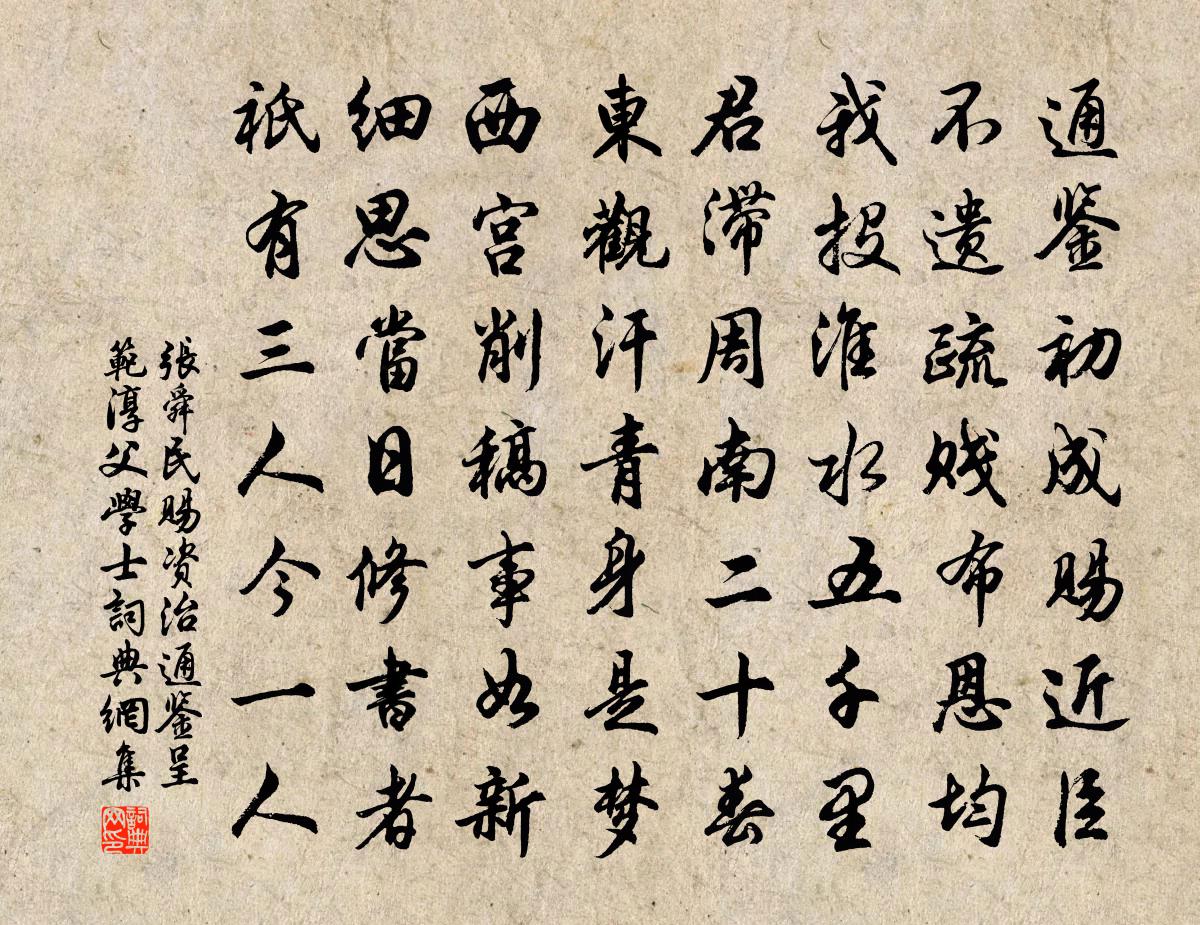 通鉴初成賜近臣
不遗疏贱布恩均
我投淮水五千里
君滞周南二十春
東觀汗青身是梦
西宫削稿事如新
细思當日修書者
祗有三人今一人
張舜民賜资治通鉴呈
範淳父學士詞典網集
詞典網印